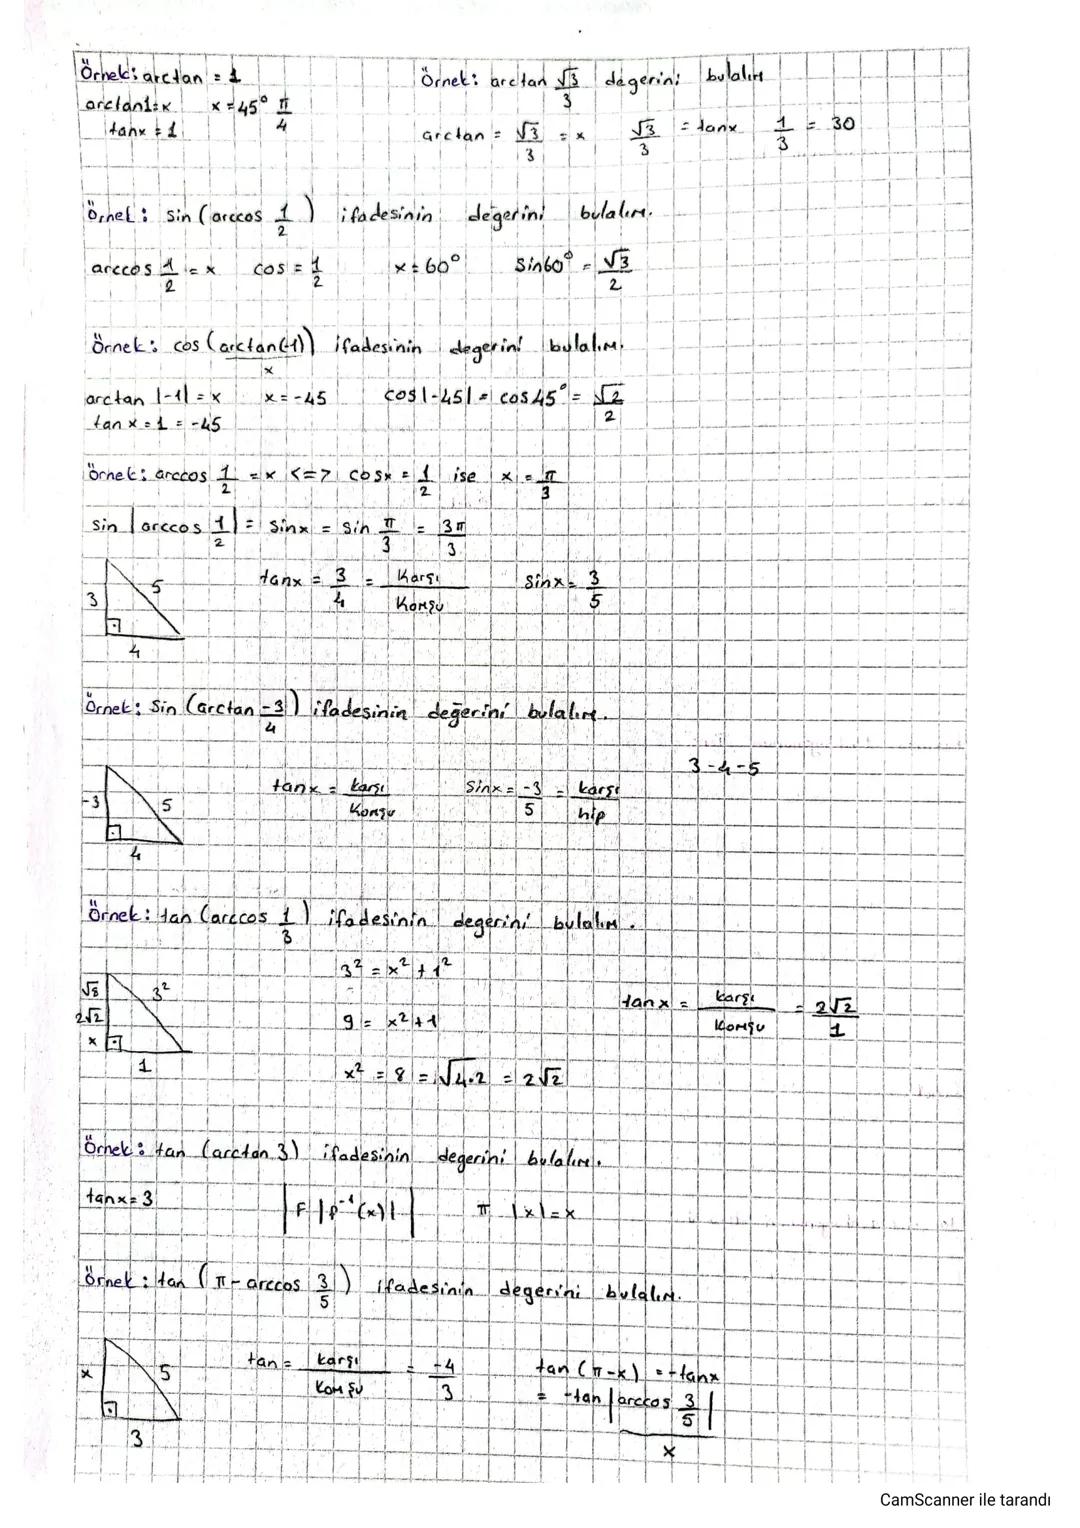 Örnek: arctan = 1
arctan1=x   x = 45° π/4
tanx = 1
Örnek: arctan √3/3 degerini bulalım
arctan = √3/3 = x   √3/3 = tanx   1/3 = 30
Örnek: sin (arccos 1/2) ifadesinin değerini bulalım.
arccos 1/2 = x   cos = 1/2   x = 60°   Sin60° = √3/2
Örnek: cos (arctan(-1)) ifadesinin degerini bulalım.
x
arctan |-1| = x   x = -45   cos|-45| = cos45° = √2/2
tan x = 1 = -45
Örnek: arccos 1/2 = x <=> cosx = 1/2 ise x = π/3
sin |arccos 1/2| = sinx = sin π/3 = 3π/3
3   5   4
tanx = 3/4 = Karşı/Komşu   sinx = 3/5
Örnek: Sin (arctan -3/4) ifadesinin değerini bulalım.
3-4-5
-3   5   4
tanx = karşı/Komşu   Sinx = -3/5 = karşı/hip
Örnek: tan (arccos 1/3) ifadesinin degerini bulalım.
3² = x² + 1²
√8   3²
2√2
x
1
9 = x² + 1
tanx = karşı/komşu = 2√2/1
x² = 8 = √4.2 = 2√2
Örnek: tan (arctan 3) ifadesinin degerini bulalım.
tanx = 3   |F|f⁻¹(x)||   π |x| = x
Örnek: tan (π - arccos 3/5) ifadesinin degerini bulalım.
x   5   3
tan = karşı/Komşu = -4/3
tan (π-x) = -tanx
= -tan |arccos 3/5|
x
CamScanner ile tarandı